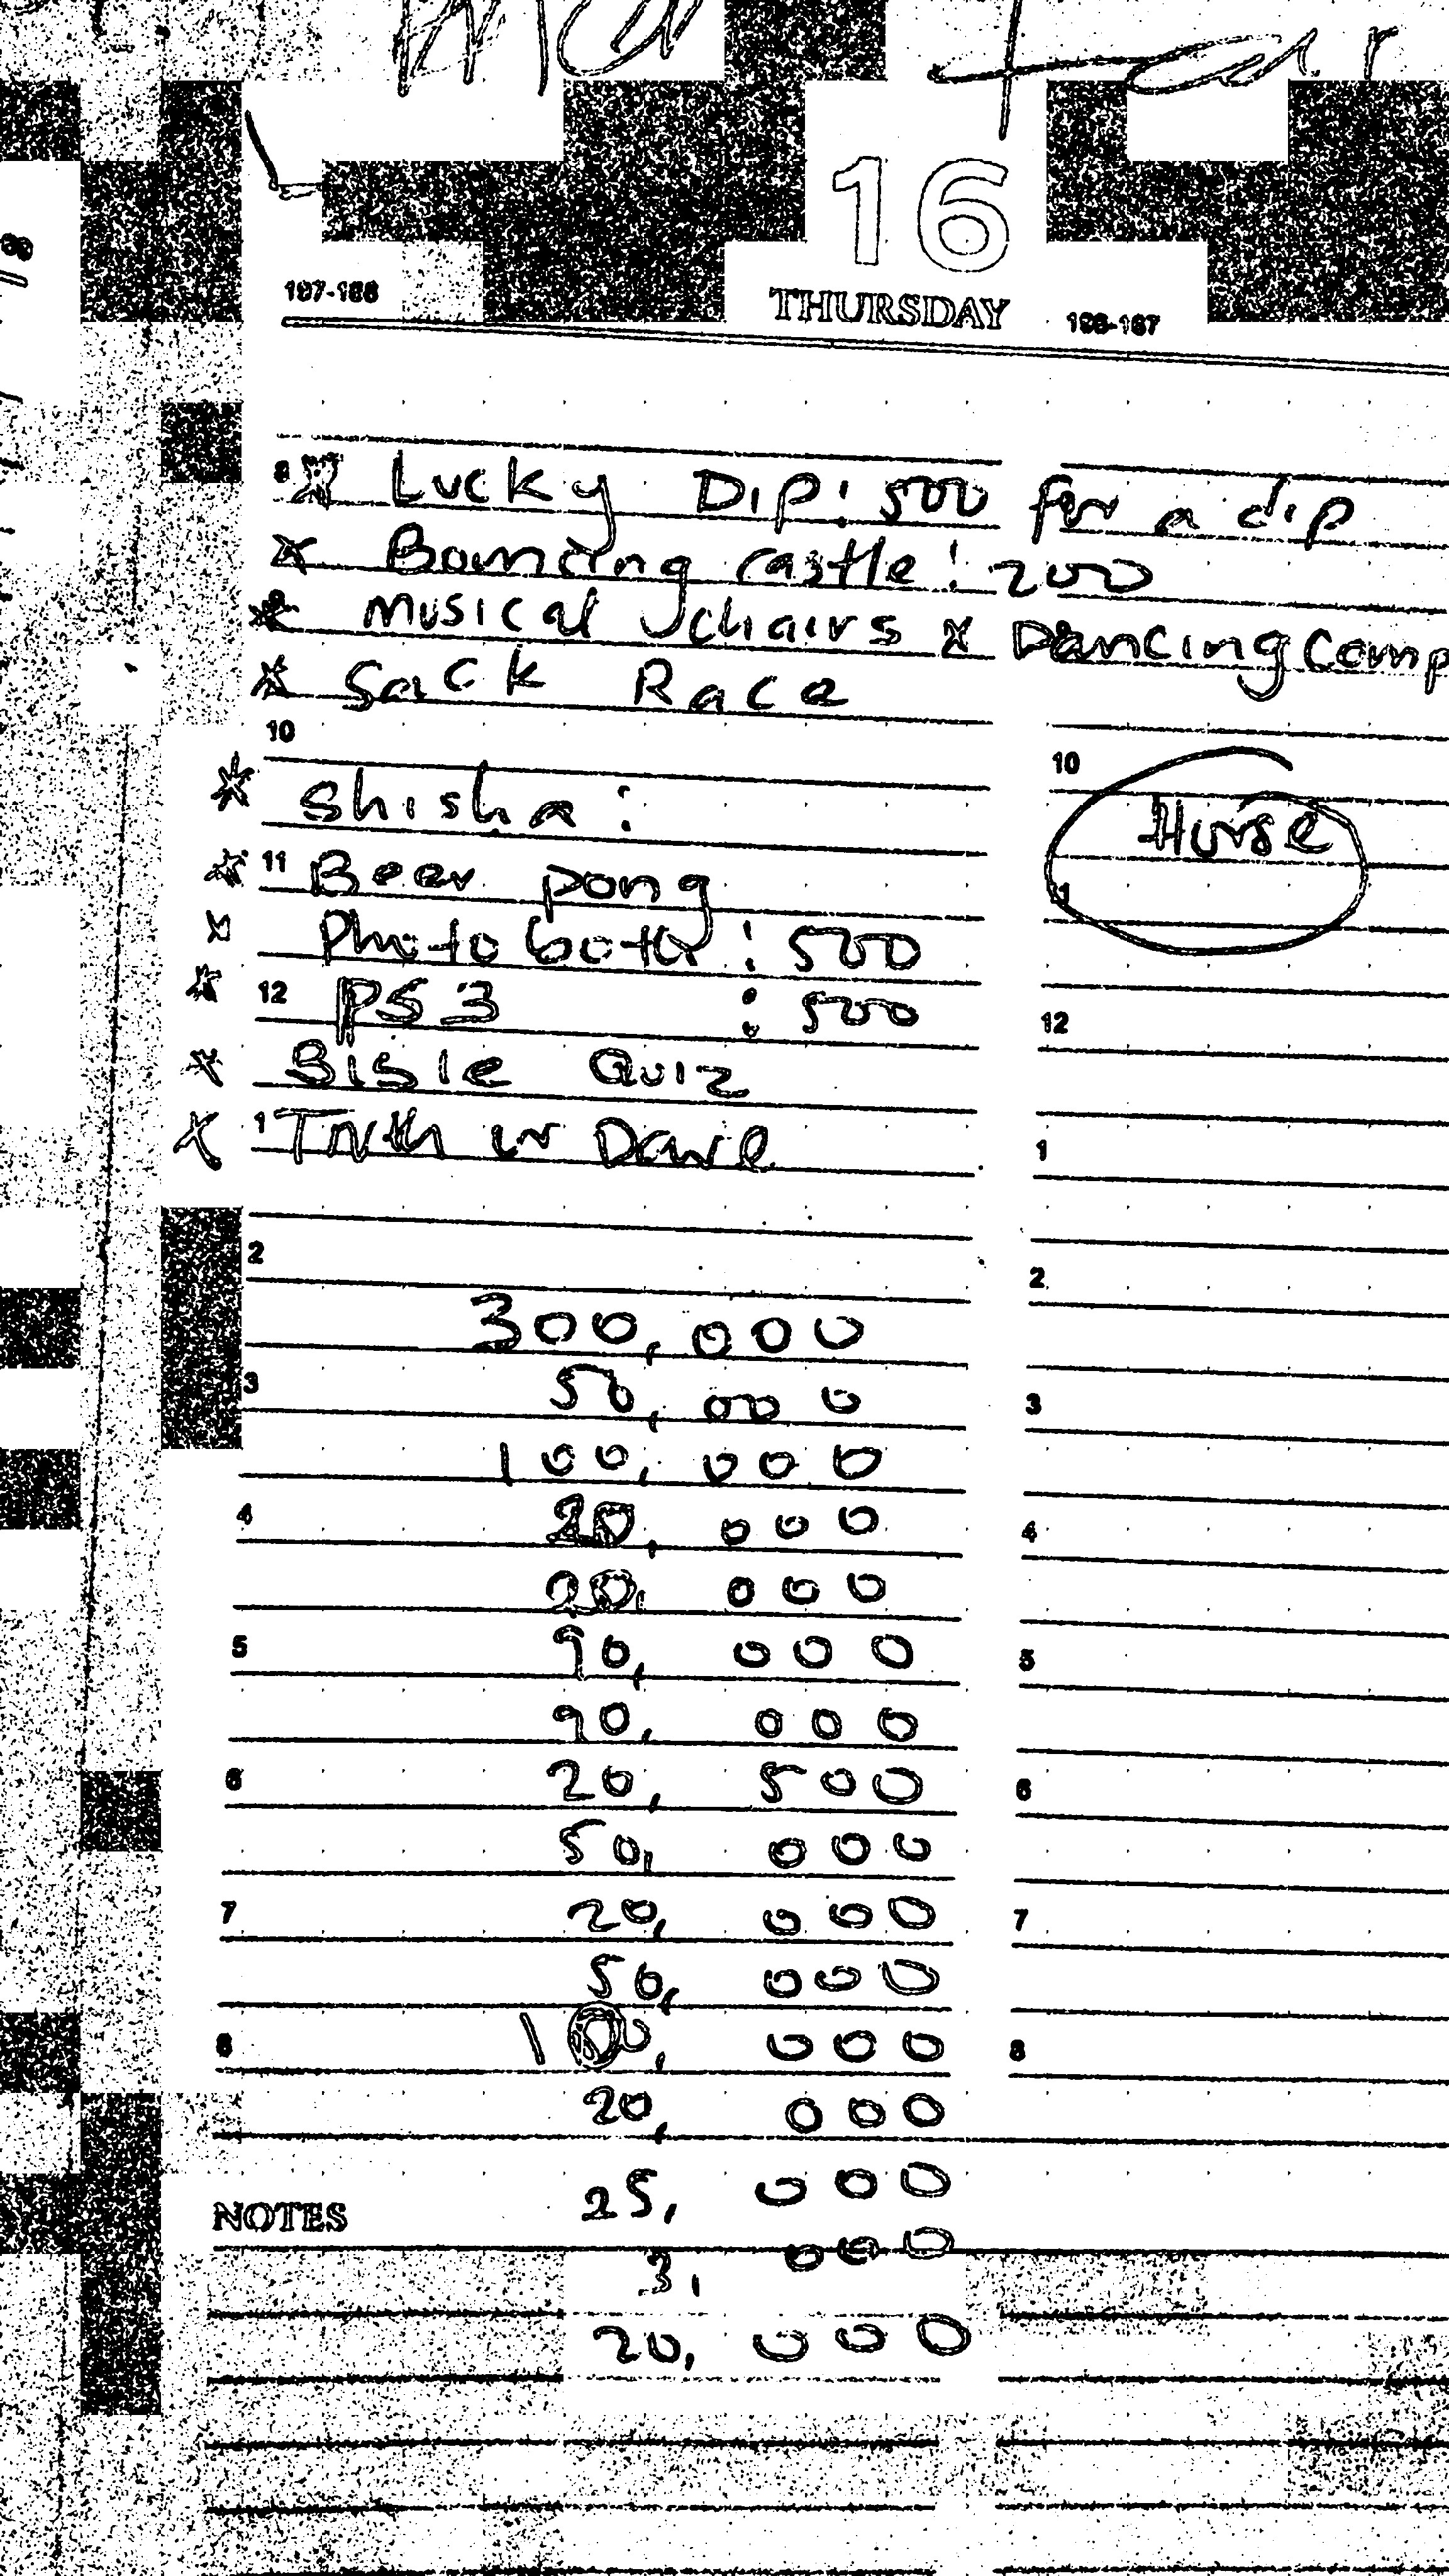 16
197-168 THURSDAY 198-167
* Lucky Dip: 500 for a dip
* Bouncing castle: 200
* Musical chairs * Dancing Comp
* Sack Race
10 10
* Shisha:
Horse
* 11 Beer pong 11
* Photo both: 500
* 12 PS3 : 500 12
* Bible Quiz
* 1 Truth or Dare 1
2 2
300,000
3 50,000 3
100,000
4 20,000 4
20,000
5 90,000 5
90,000
6 20,500 6
50,000
7 20,000 7
50,000
8 100,000 8
20,000
NOTES 25,000
3,000
20,000